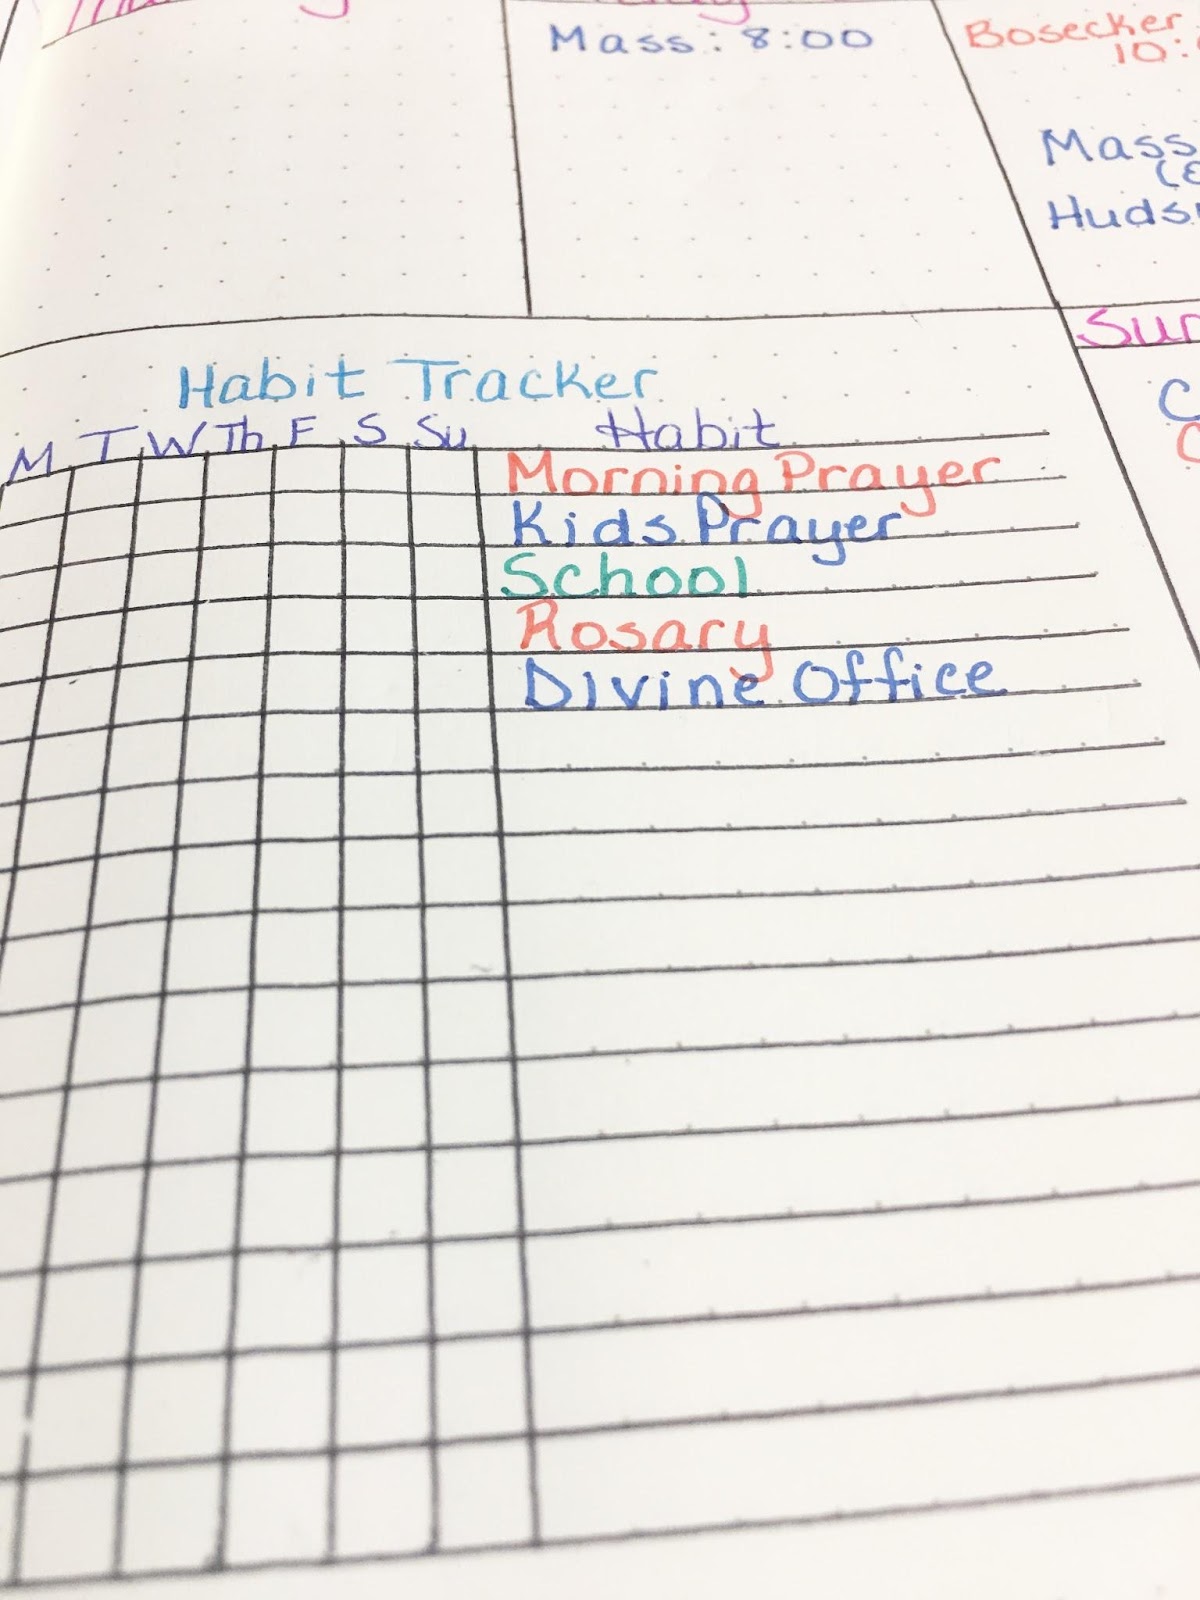 Mass: 8:00
Bosecker
Mass
Habit Tracker
M T W Th F S Su Habit
Morning Prayer
Kids Prayer
School
Rosary
Divine Office